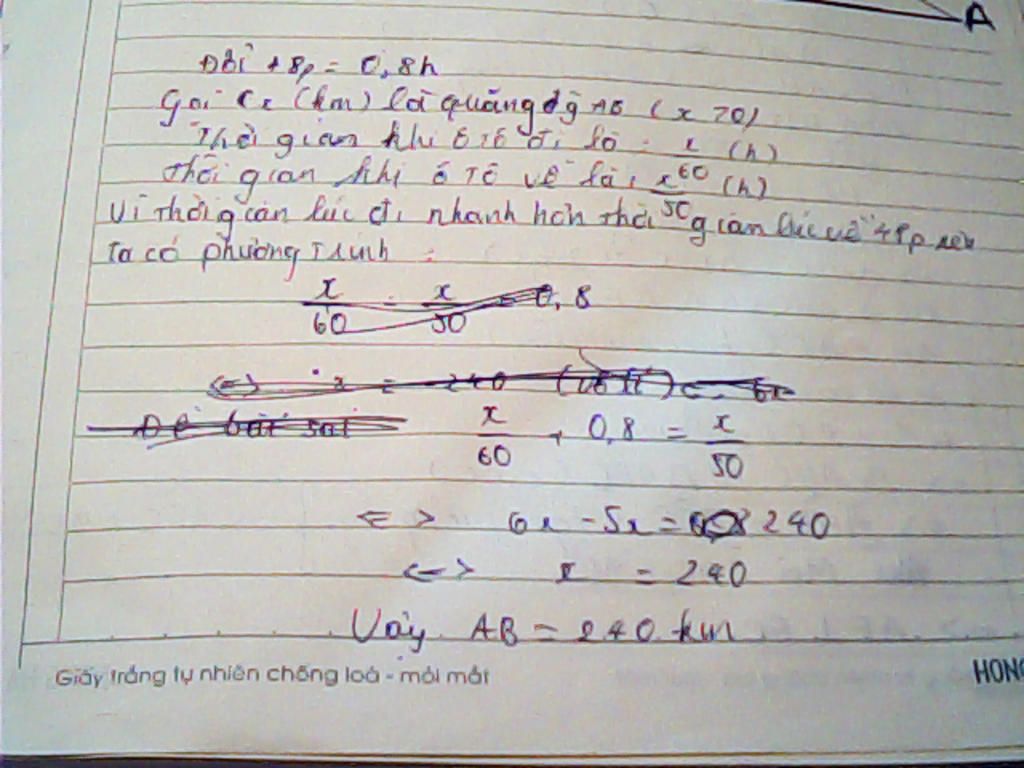 A
Đổi 48p = 0,8h
Gọi x (km) là quãng đg AB (x > 0)
Thời gian khi ô tô đi là : x/60 (h)
Thời gian khi ô tô về là : x/50 (h)
Vì thời gian lúc đi nhanh hơn thời gian lúc về 48p nên
ta có phương trình :
x/60 - x/50 = 0,8
<=> x = -240 (vô lí)
Đề bài sai
x/60 + 0,8 = x/50
<=> 6x - 5x = 240
<=> x = 240
Vậy AB = 240 km
Giấy trắng tự nhiên chống loá - mỏi mắt
HONG